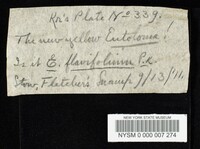 Plate No 339.
The new yellow Entoloma!
Is it E. flavifolium Pk.
Stow, Fletcher's Swamp 9/13/'11.
NEW YORK STATE MUSEUM
NYSM 0 000 007 274